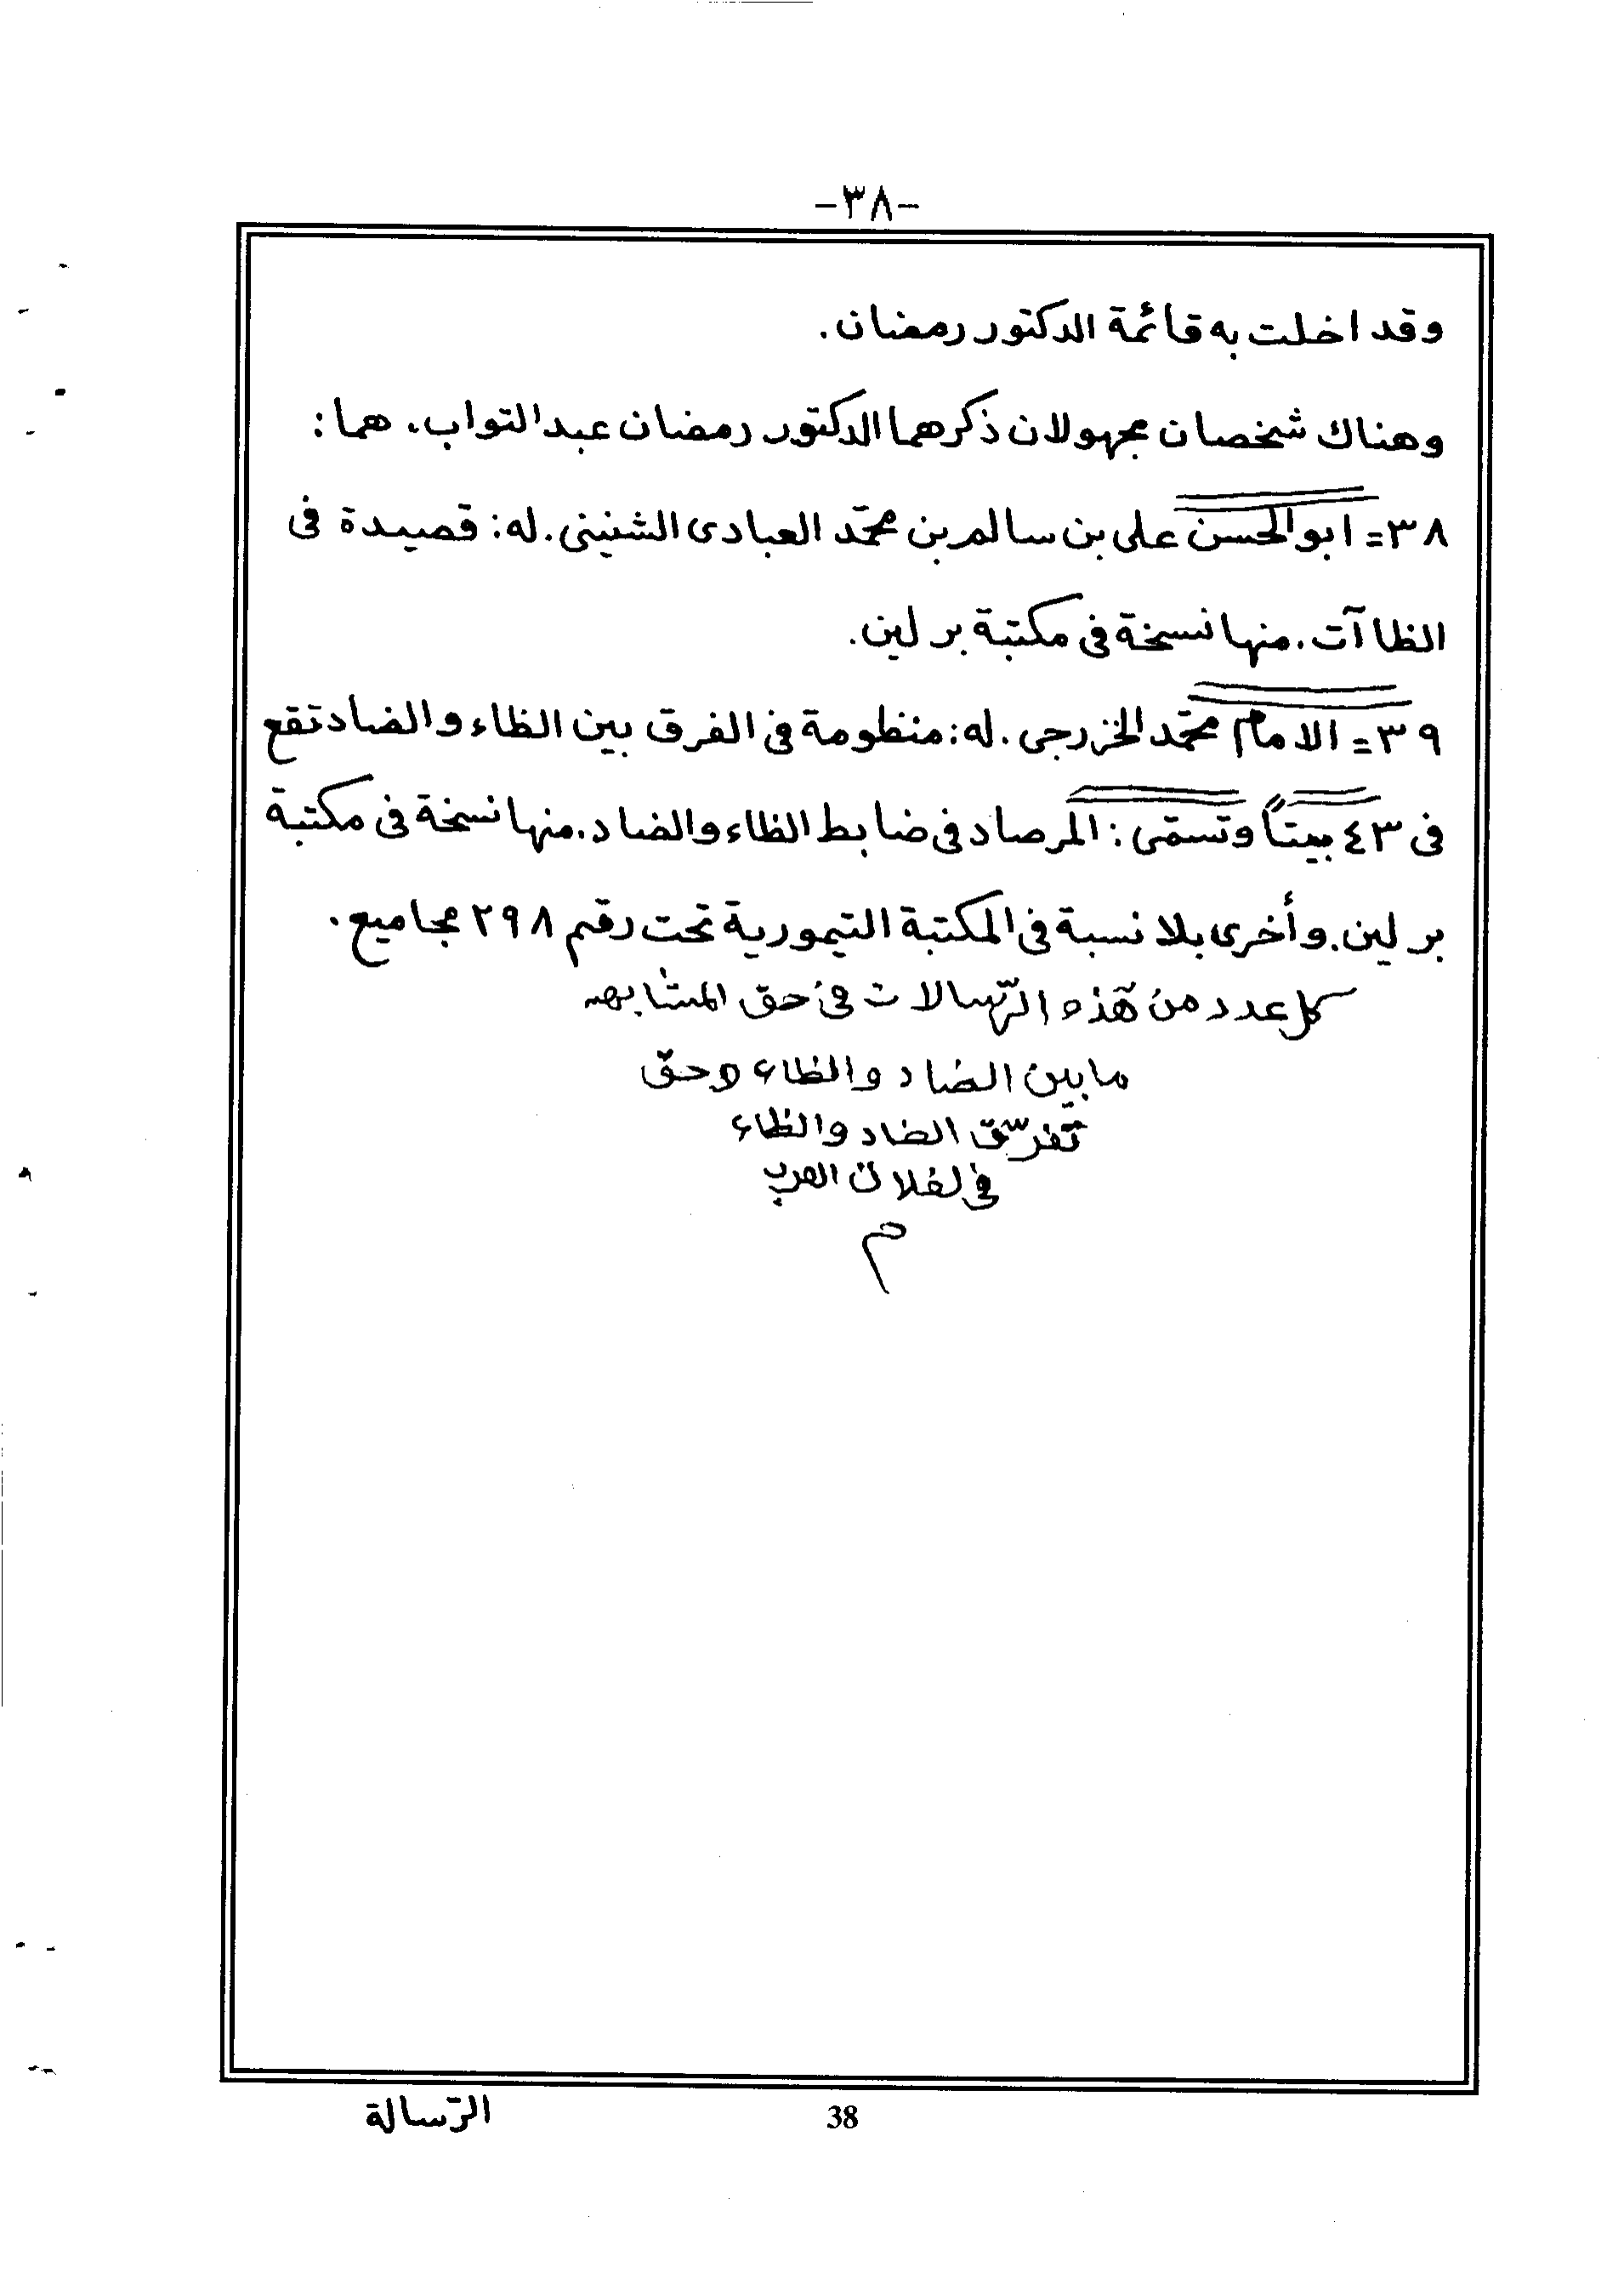 -٣٨-
وقد اخلت به قائمة الدكتور رمضان.
وهناك شخصان مجهولان ذكرهما الدكتور رمضان عبد التواب. هما:
٣٨= ابو الحسن علي بن سالم بن محمّد العبادى الشنينى. له: قصيدة فى
الظاآت. منها نسخة فى مكتبة برلين.
٣٩= الامام محمّد الخزرجى. له: منظومة فى الفرق بين الظاء والضاد تقع
فى ٤٣ بيتاً وتسمّى: المرصاد فى ضابط الظاء والضاد. منها نسخة فى مكتبة
برلين. وأخرى بلا نسبة فى المكتبة التيمورية تحت رقم ٢٩٨ مجاميع.
كل عدد من هذه الرّسالات فى حق المشابهه
ما بين الضاد والظاء وحقّ
تفريق الضاد والظاء
فى العرب
م
الرّسالة
38